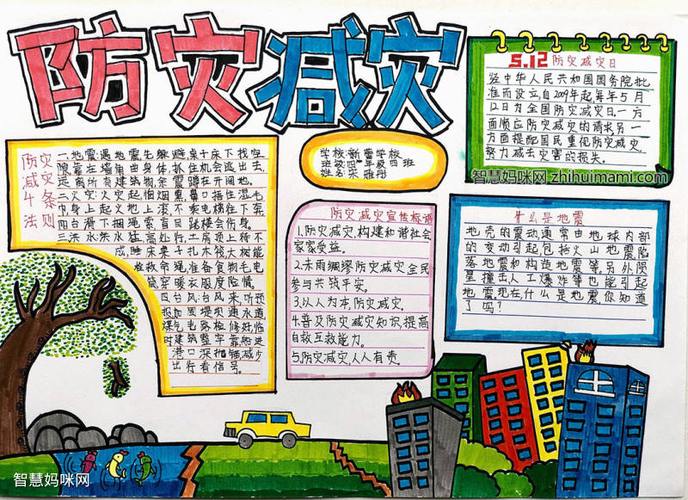 防灾减灾
5.12防灾减灾日
经中华人民共和国国务院批
准而设立自2009年起每年5月
12日为全国防灾减灾日一方
面顺应防灾减灾的请求另一
方面提配国民重化防灾减灾
努力减去灾害的损失。
智慧妈咪网 zhihuimami.com
学校:新雷学校
班级:四年级四班
姓名:宋雅丹
防灾减灾4条法则
一.地震遇地震先躲避桌子床下找空
隙靠在墙角曲身体抓住机会逃出去
远离所有建筑物余震蹲在开阔地。
二火灾火灾起怕烟熏鼻口捂住湿毛
巾身上起火地上滚不乘电梯往下奔
四台滑下捆绳索盲目跳楼会伤身。
三洪水洪水猛高处行土房顶上待不
成睡床桌子扎木筏大树能
拴救命绳准备食物毛电
筒穿暖衣服度险情。
四台风台风来,听预
报加固堤坝通水道
煤气电路检修处临
时建筑整牢靠船进
港口深抛锚减少
出行看信号。
防灾减灾宣传标语
1.防灾减灾,构建和谐社会
家家受益。
2.未雨绸缪防灾减灾全民
参与共筑平安。
3.以人为本防灾减灾。
4.普及防灾减灾知识提高
自救互救能力。
5.防灾减灾人人有责。
什么是地震
地壳的震动通常由地球内部
的变动引起包括火山地震陷
落地震和构造地震等另外陨
星撞击人工爆炸等也能引起
地震现在什么是地震你知道
了吗?
智慧妈咪网